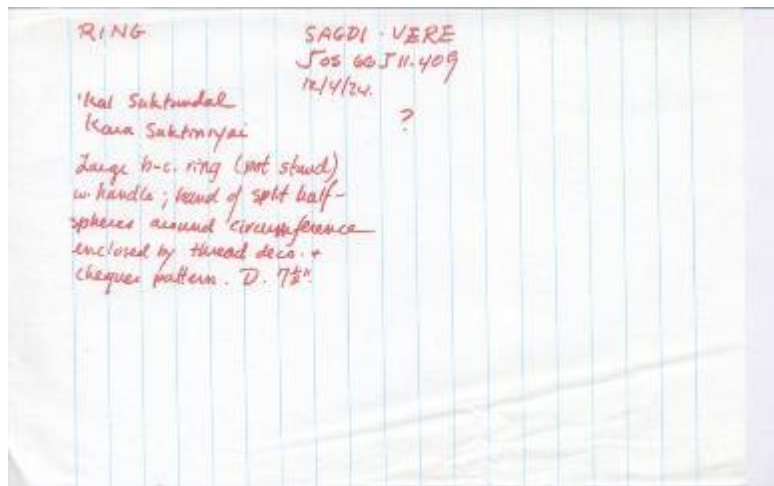 RING
SAGDI - VERE
Jos 60 J 11.409
12/4/24.
?
'kal Suktundal
Kara
Large b-c. ring (pot stand)
w. handle; band of split half-
spheres around circumference
enclosed by thread deco. +
chequer pattern. D. 7½".